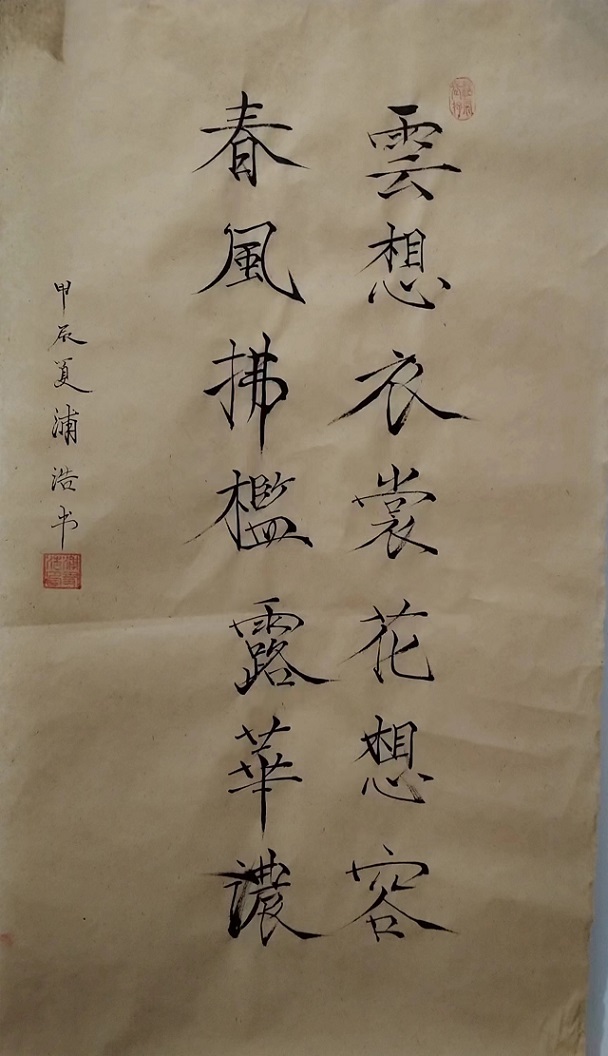 雲想衣裳花想容
春風拂檻露華濃
甲辰夏浦浩书